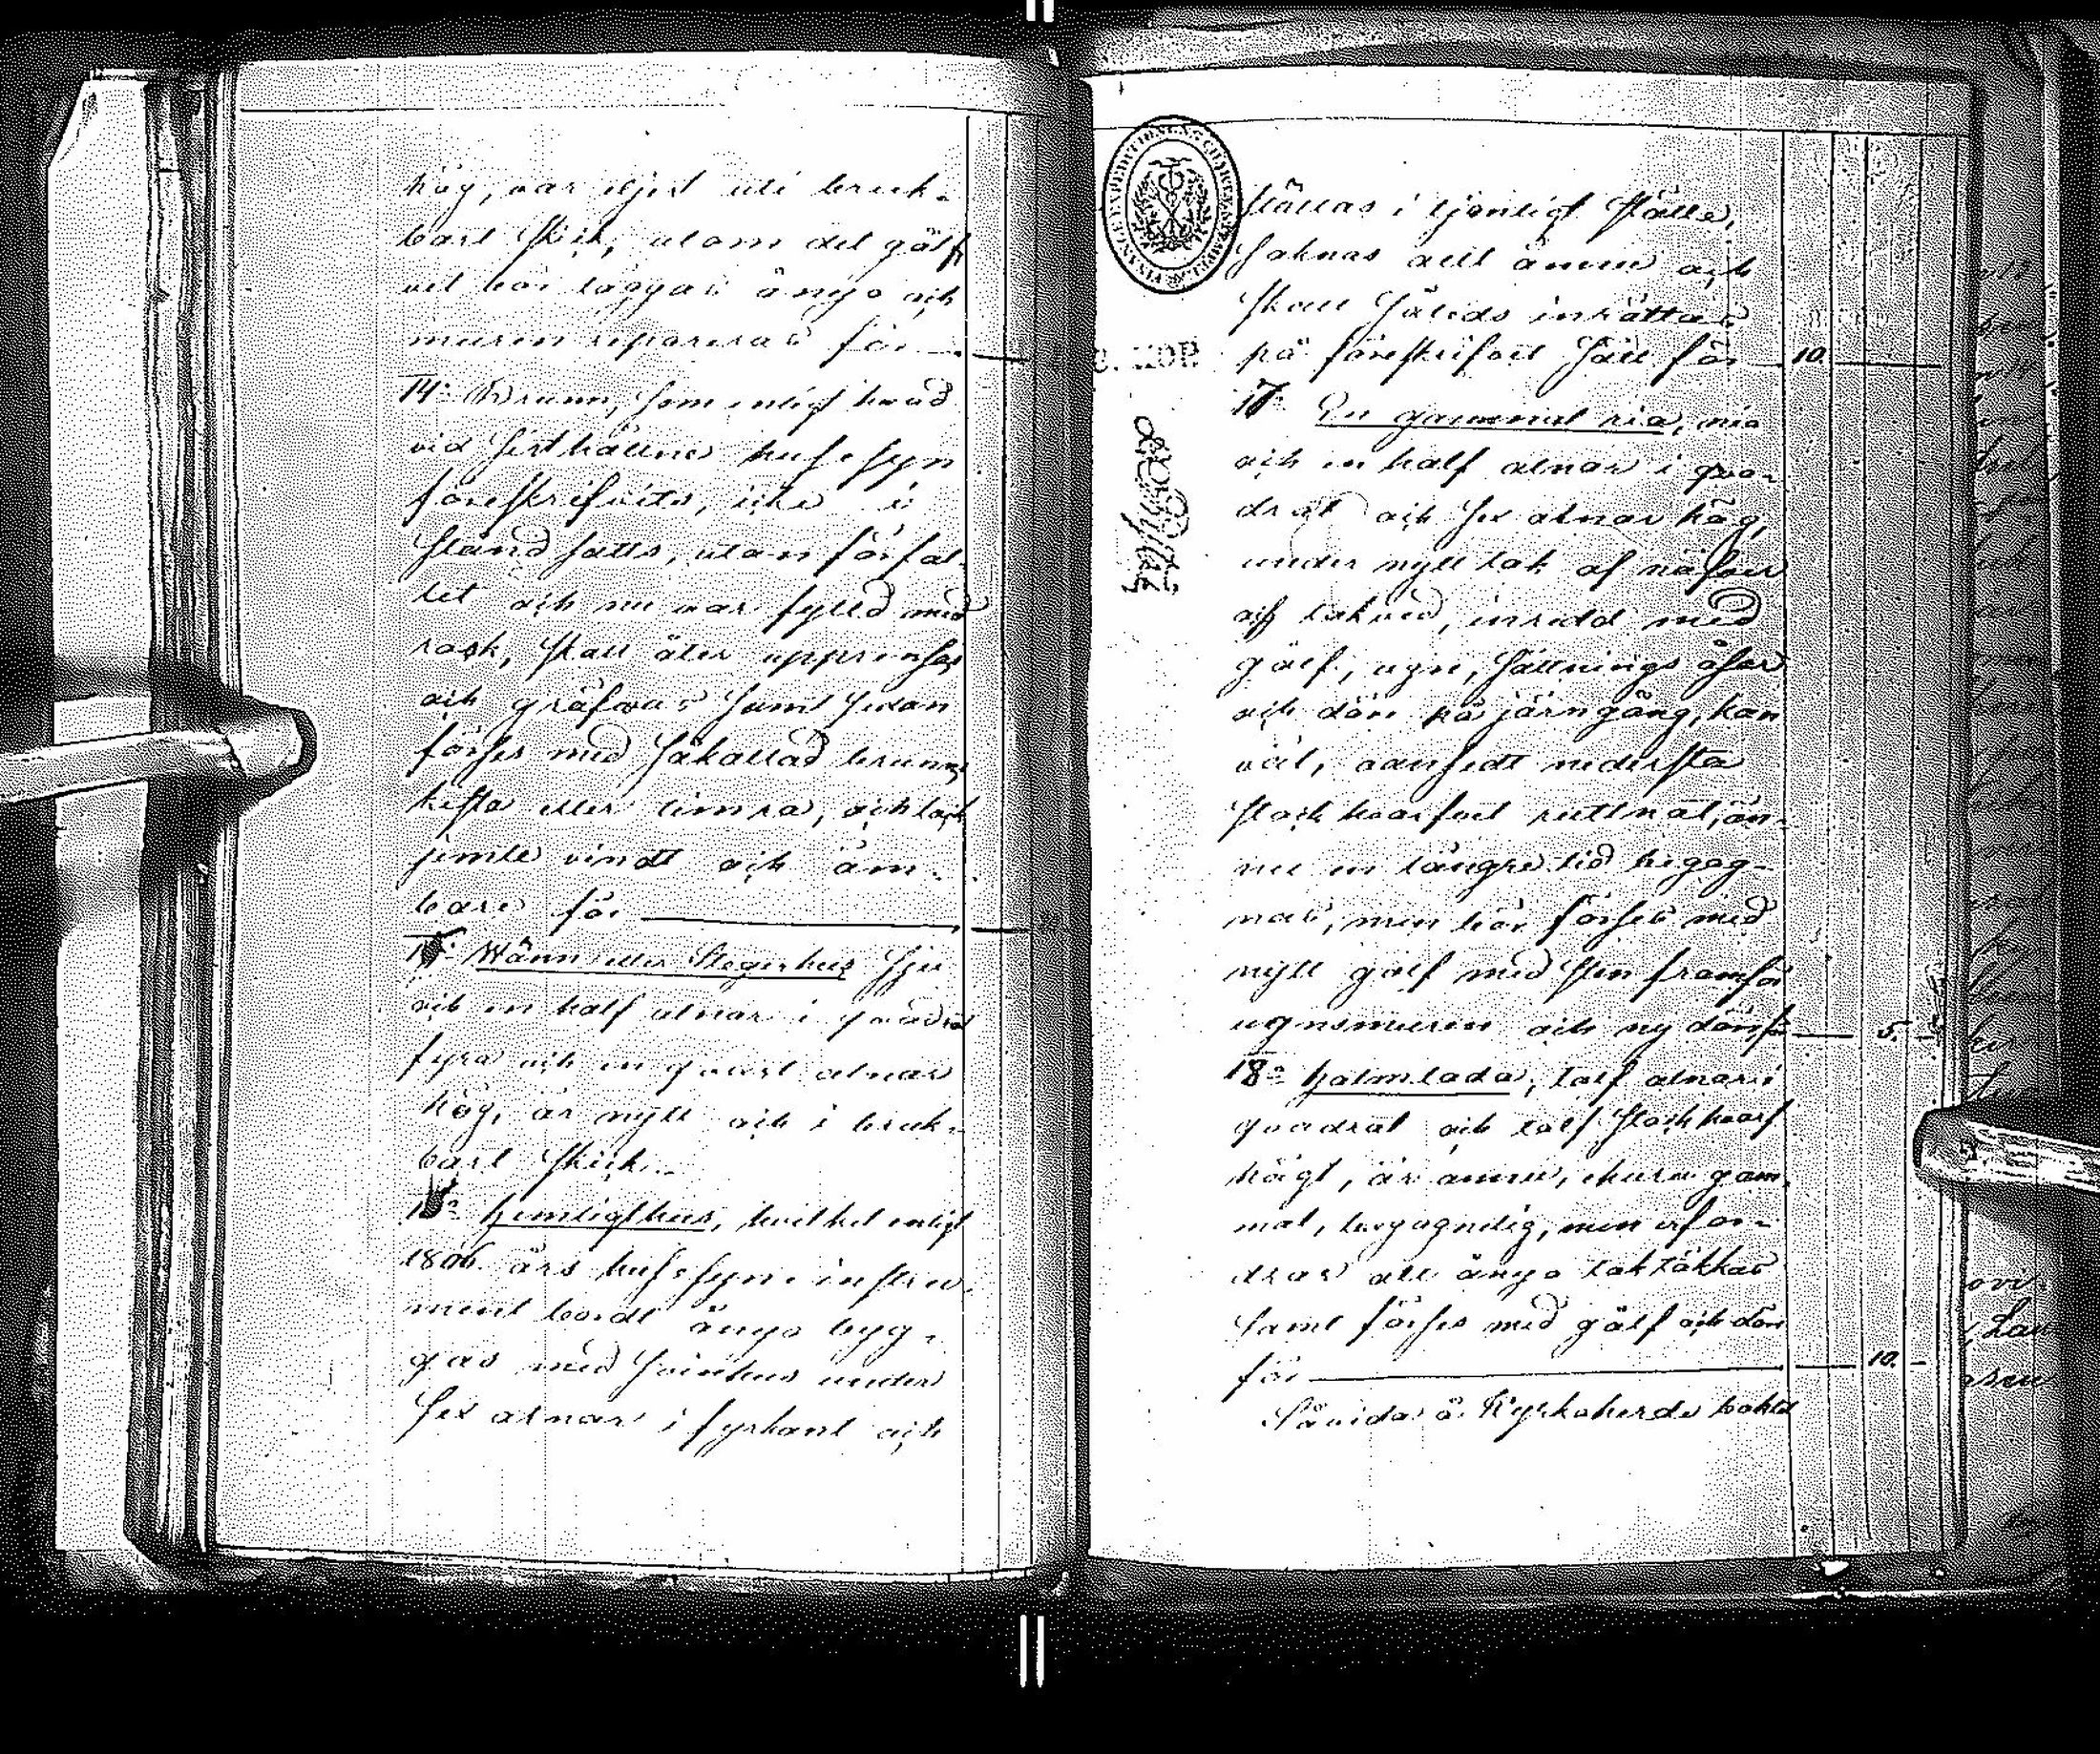 hög, var eljest uti bruk-
bart skick, utom det gålf-
vet bör läggas ånyo och
muren repareras för
14: Brunn, som enligt hvad
vid sisthållne husesyn
föreskrifvits, icke i
stånd satts, utan förfal-
let och nu var fylld med
rask, skall åter upprensas
och gräfvas samt sedan
förses med såkallad brunns
kista eller timra, och lock
jemte vindt och äm-
bare för
15: Wänn eller Stegerhus sju
och en half alnar i quadrat
fyra och en quart alnar
hög, är nytt och i bruk-
bart skick.
16: Hemligthus, hvilket enligt
1806 års husesyns instru-
ment bordt ånyo byg-
gas med svinhus under
sex alnar i fyrkant och
ställas i tjenligt ställe,
saknas allt ännu och
skall således inrättas
på föreskrifvet sätt för 10.
17: En gammal ria, nio
och en half alnar i qva-
drat och sex alnar hög,
under nytt tak af näfver
och takved, inredd med
gålf, ugn, sättnings åsar
och dörr på järngång, kan
väl, oansedt nedersta
stockhvarfvet ruttnat, än-
nu en längre tid begag-
nas, men bör förses med
nytt gålf med sten framför
ugnsmuren och ny dörr för 5.
18: Halmlada, tolf alnar i
quadrat och tolf stockhvarf
högt, är ännu, ehuru gam-
mal, begagnelig, men erfor-
drar att ånyo taktäkkas
samt förses med gålf och dörr
för 10.
Såvida å Kyrkoherde bohlet